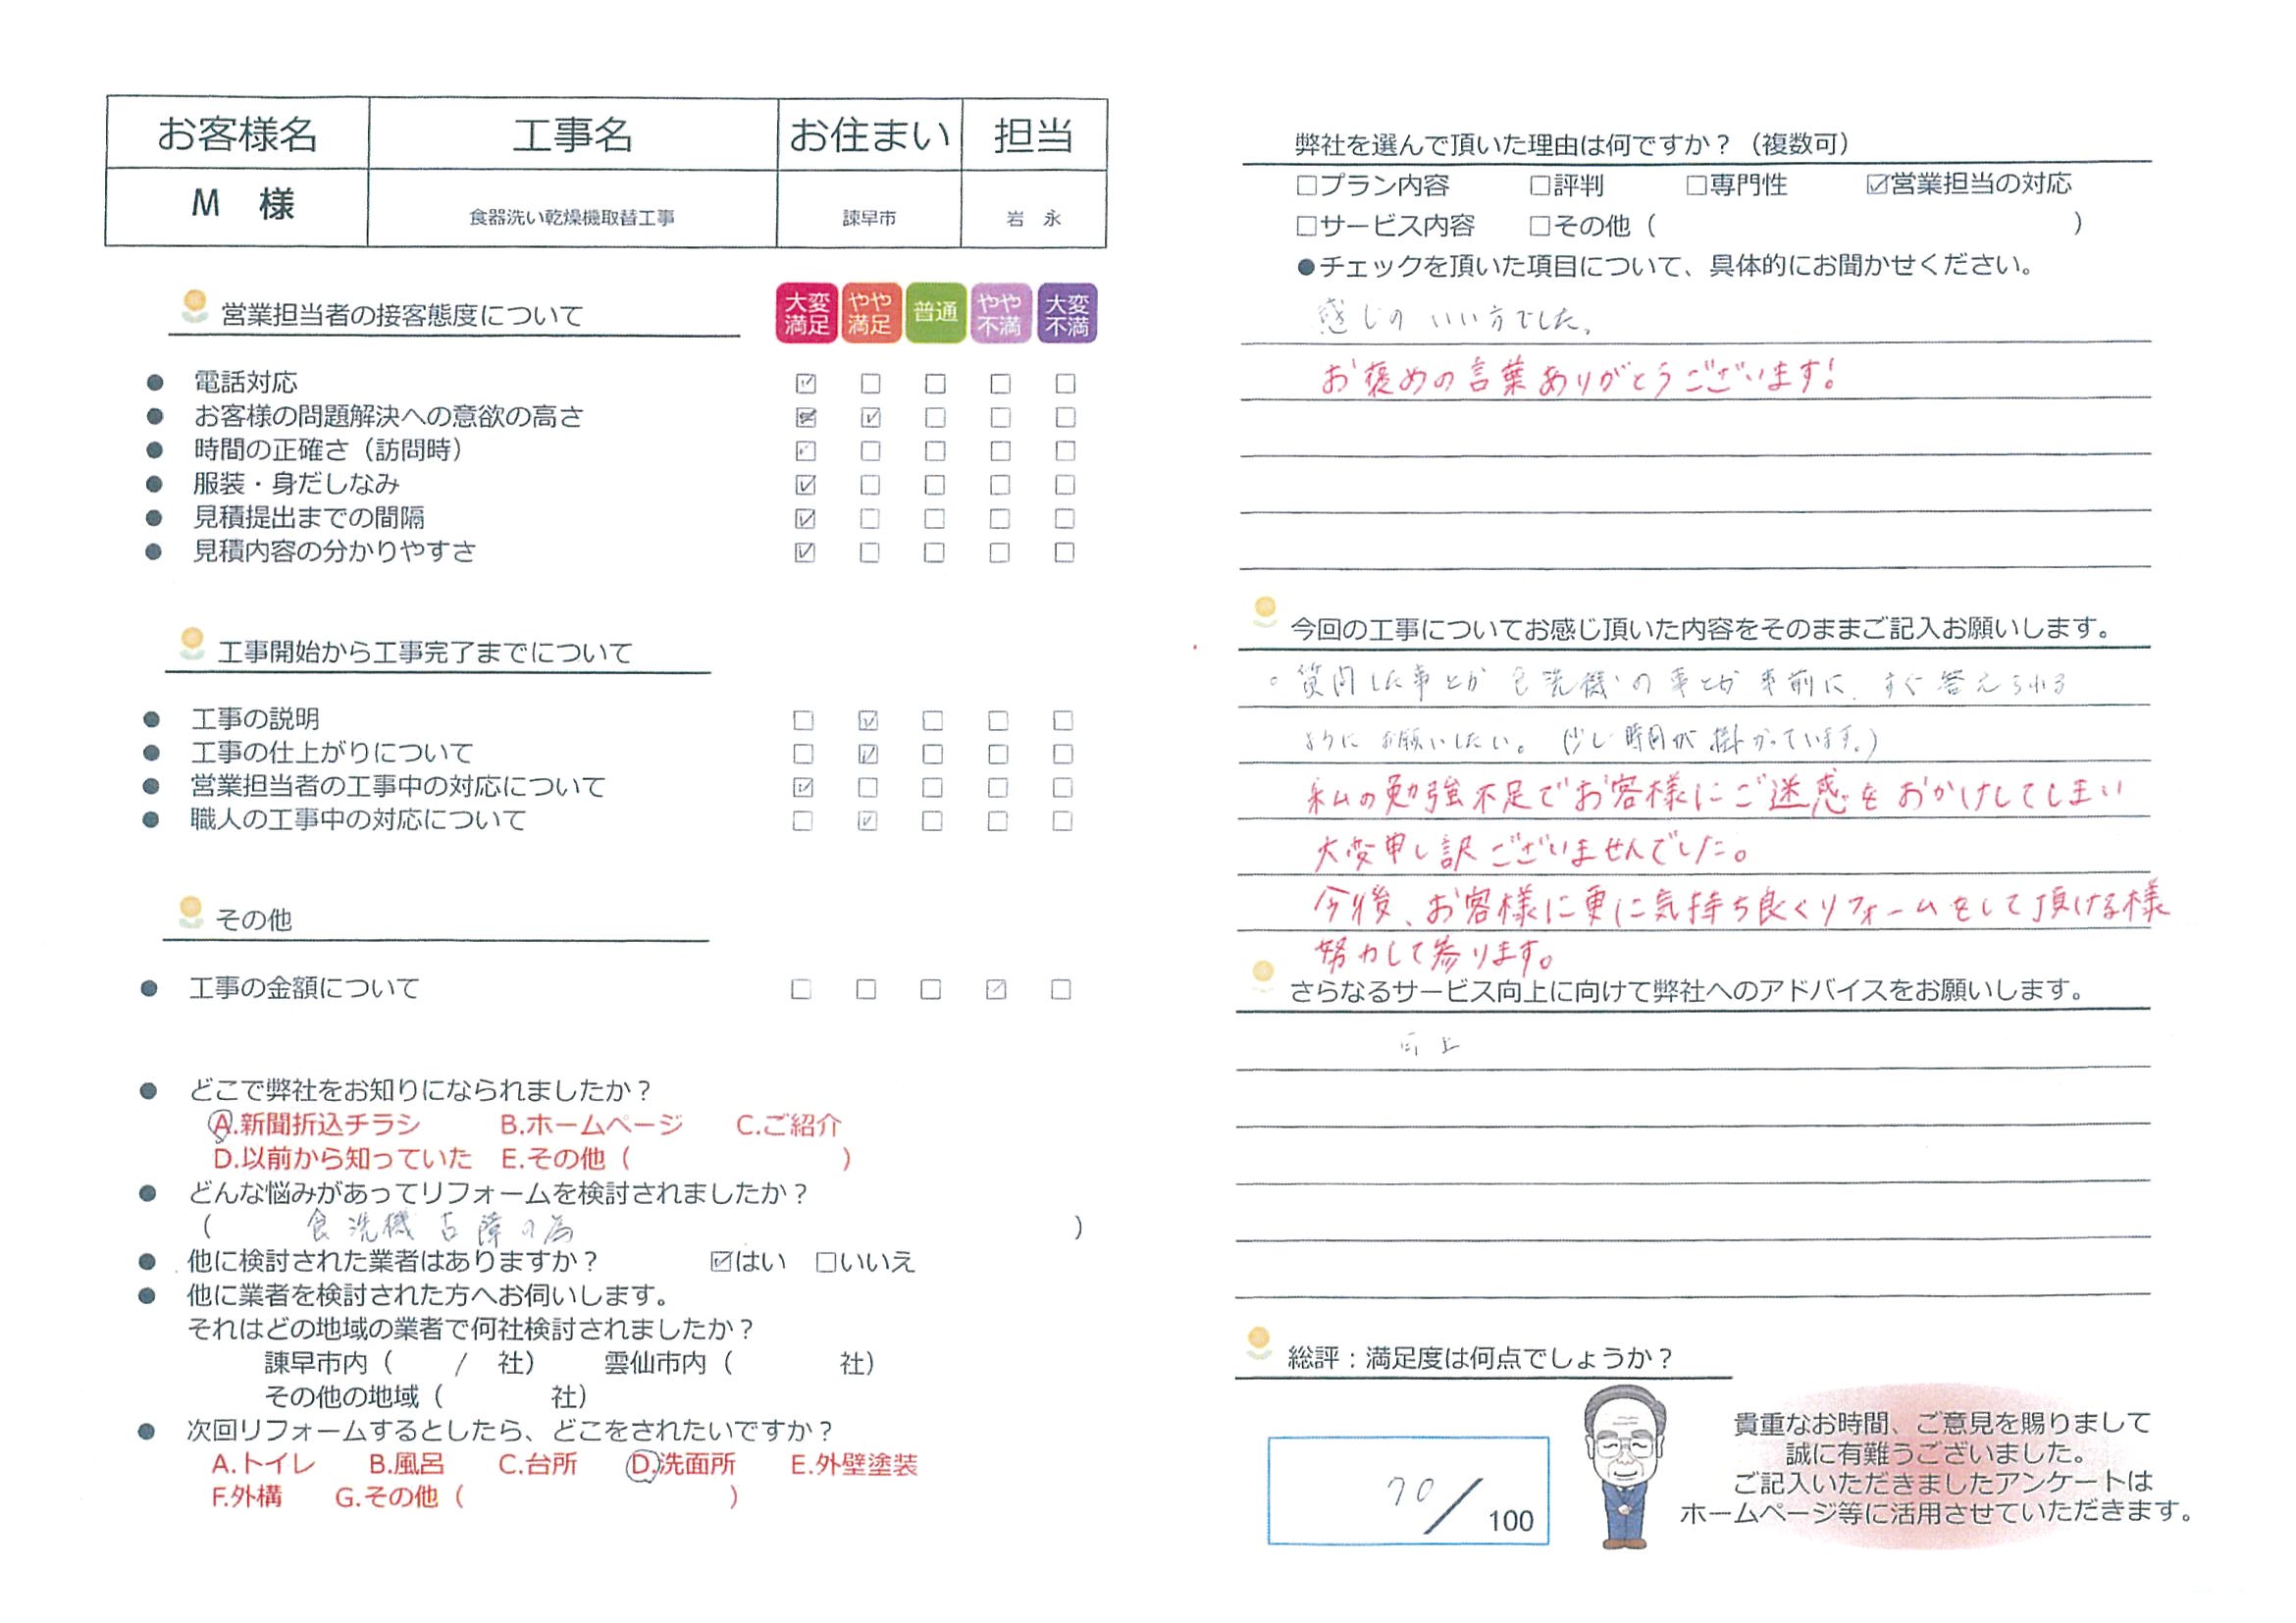 お客様名 工事名 お住まい 担当
M 様 食器洗い乾燥機取替工事 諫早市 岩 永
営業担当者の接客態度について
大変満足 やや満足 普通 やや不満 大変不満
● 電話対応 ☑ □ □ □ □
● お客様の問題解決への意欲の高さ ☑ ☑ □ □ □
● 時間の正確さ（訪問時） ☑ □ □ □ □
● 服装・身だしなみ ☑ □ □ □ □
● 見積提出までの間隔 ☑ □ □ □ □
● 見積内容の分かりやすさ ☑ □ □ □ □
工事開始から工事完了までについて
● 工事の説明 □ ☑ □ □ □
● 工事の仕上がりについて □ ☑ □ □ □
● 営業担当者の工事中の対応について ☑ □ □ □ □
● 職人の工事中の対応について □ ☑ □ □ □
その他
● 工事の金額について □ □ □ ☑ □
● どこで弊社をお知りになられましたか？
A.新聞折込チラシ B.ホームページ C.ご紹介
D.以前から知っていた E.その他（ ）
● どんな悩みがあってリフォームを検討されましたか？
（ 食洗機古障の為 ）
● 他に検討された業者はありますか？ ☑はい □いいえ
● 他に業者を検討された方へお伺いします。
それはどの地域の業者で何社検討されましたか？
諫早市内（ / 社） 雲仙市内（ 社）
その他の地域（ 社）
● 次回リフォームするとしたら、どこをされたいですか？
A.トイレ B.風呂 C.台所 D.洗面所 E.外壁塗装
F.外構 G.その他（ ）
弊社を選んで頂いた理由は何ですか？（複数可）
□プラン内容 □評判 □専門性 ☑営業担当の対応
□サービス内容 □その他（ ）
●チェックを頂いた項目について、具体的にお聞かせください。
感じの いい方でした。
お褒めの言葉ありがとうございます！
今回の工事についてお感じ頂いた内容をそのままご記入お願いします。
。質問した事とか 食洗機の事とか 事前に、すぐ答えられる
ようにお願いしたい。（少し時間が掛かっています。）
私の勉強不足でお客様にご迷惑をおかけしてしまい
大変申し訳ございませんでした。
今後、お客様に更に気持ち良くリフォームをして頂ける様
努力して参ります。
さらなるサービス向上に向けて弊社へのアドバイスをお願いします。
同上
総評：満足度は何点でしょうか？
70/100
貴重なお時間、ご意見を賜りまして
誠に有難うございました。
ご記入いただきましたアンケートは
ホームページ等に活用させていただきます。